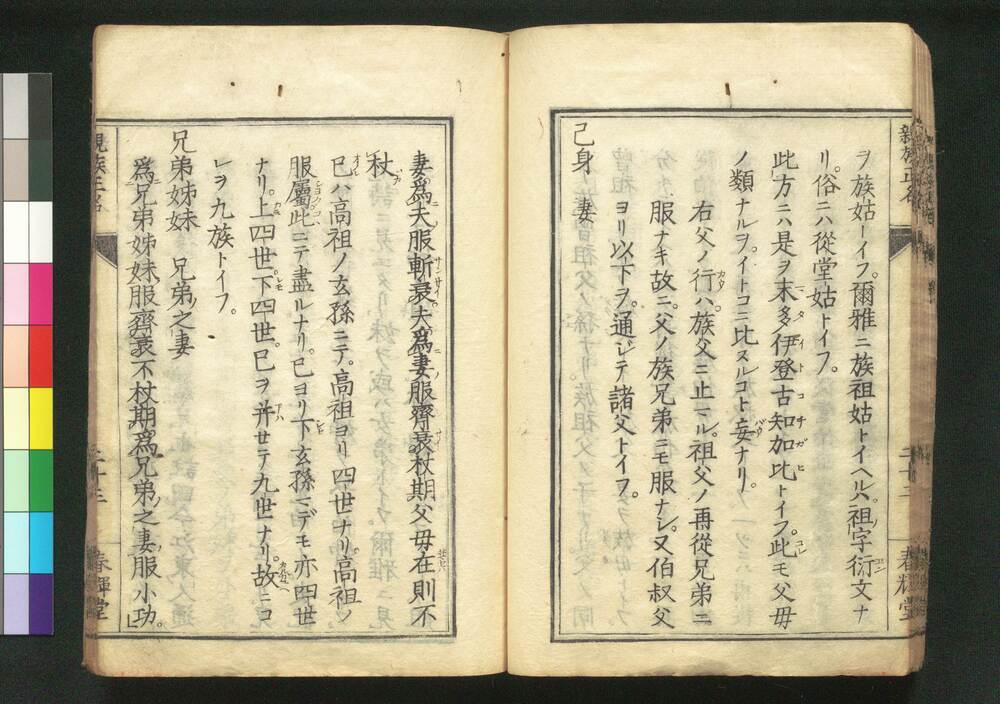 ヲ族姑トイフ。爾雅ニ族祖姑トイヘルハ。祖ノ字衍文ナ
リ。俗ニハ從堂姑トイフ。
此方ニハ是ヲ末多伊登古知加比トイフ。此モ父毋
ノ類ナルヲ。イトコニ比スルコト妄ナリ。
右父ノ行ハ。族父ニ止マル。祖父ノ再從兄弟ニ
服ナキ故ニ。父ノ族兄弟ニモ服ナシ。又伯叔父
ヨリ以下ヲ。通ジテ諸父トイフ。
己身 妻
親族正名
二十二
春輝堂
妻爲夫服斬衰夫爲妻服齊衰杖期父毋在則不
杖
巳ハ高祖ノ玄孫ニテ。高祖ヨリ四世ナリ。高祖ノ
服屬此ニテ盡ルナリ。巳ヨリ下玄孫マデモ亦四世
ナリ。上四世。下四世。巳ヲ并セテ九世ナリ。故ニコ
レヲ九族トイフ。
兄弟姊妹 兄弟ノ之妻
爲兄弟姊妹服齊衰不杖期爲兄弟ノ之妻服小功。
親族正名
二十三
春輝堂